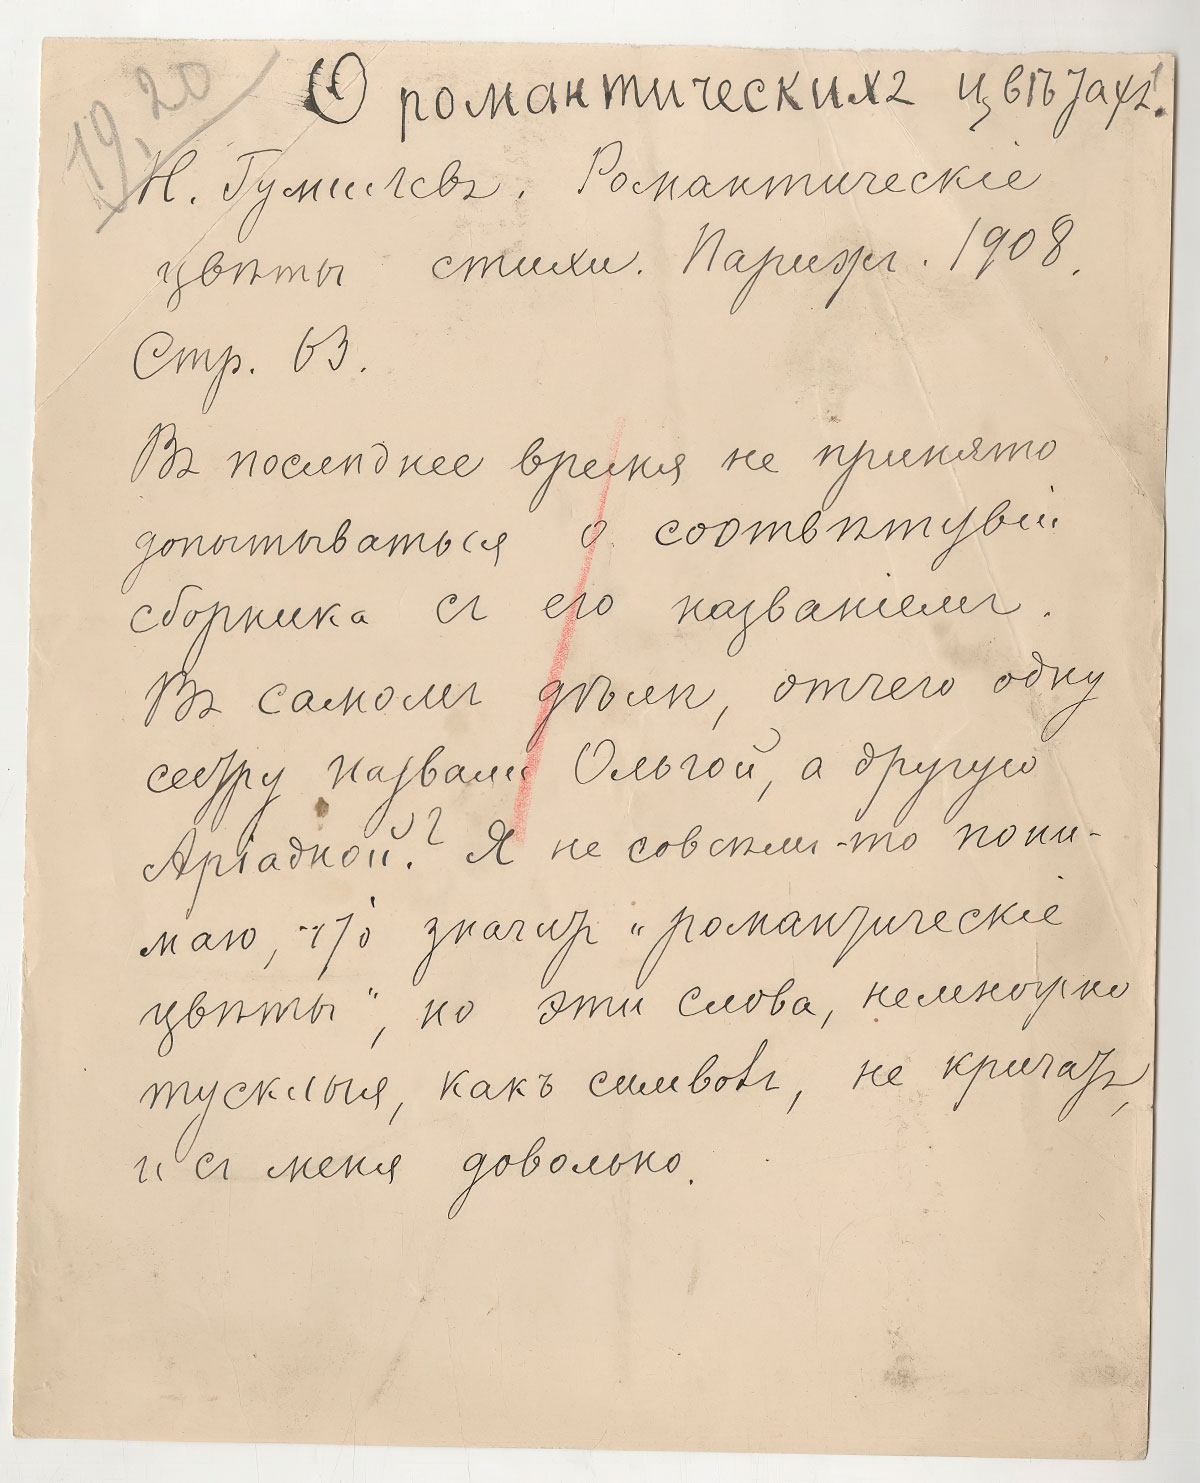 19, 20
О романтическихъ цвѣтахъ.
Н. Гумилевъ. Романтическіе
цвѣты стихи. Парижъ. 1908.
Стр. 63.
Въ послѣднее время не принято
допытываться о соотвѣтствіи
сборника съ его названіемъ.
Въ самомъ дѣлѣ, отчего одну
сестру назвали Ольгой, а другую
Аріадной? Я не совсѣмъ-то пони-
маю, что значитъ „романтическіе
цвѣты“, но эти слова, немножко
тусклыя, какъ символъ, не кричатъ,
и съ меня довольно.